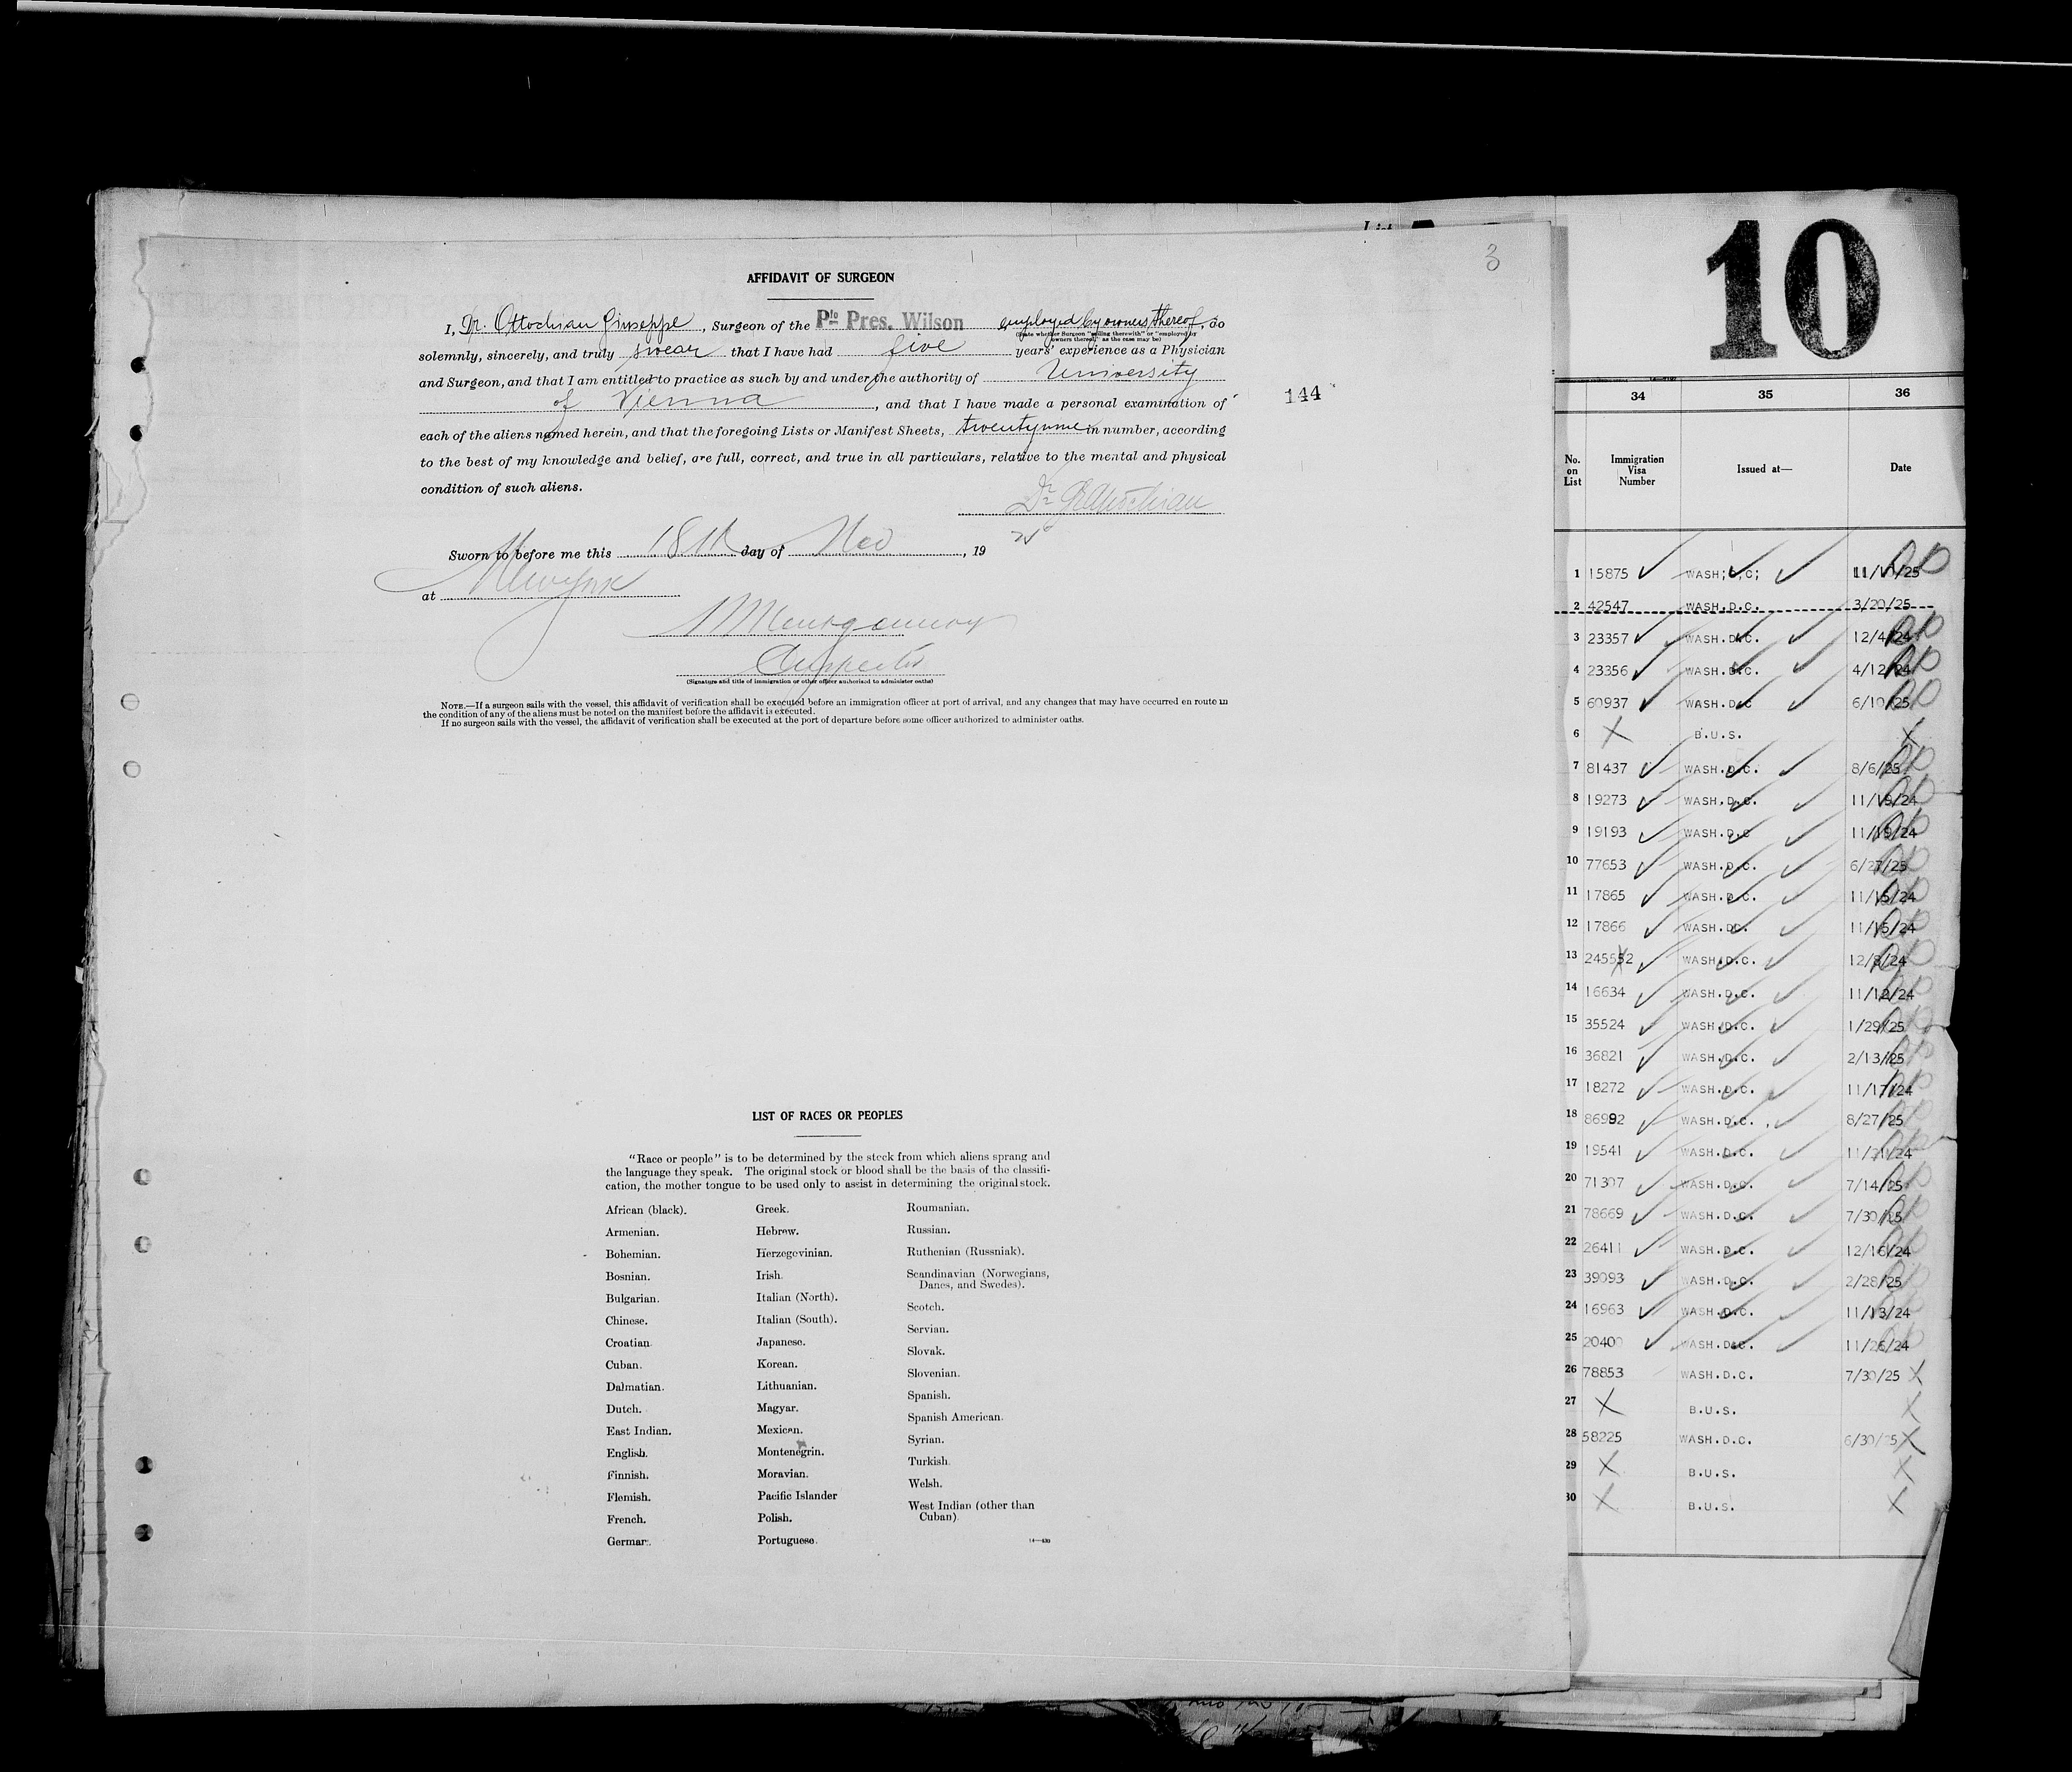 3
AFFIDAVIT OF SURGEON
I, Dr. Ottochian Giuseppe, Surgeon of the Pfo Pres. Wilson employed by owners thereof, do
(State whether Surgeon "sailing therewith" or "employed by
owners thereof," as the case may be)
solemnly, sincerely, and truly swear that I have had five years' experience as a Physician
and Surgeon, and that I am entitled to practice as such by and under the authority of University
of Vienna, and that I have made a personal examination of
144
each of the aliens named herein, and that the foregoing Lists or Manifest Sheets, in number, according
to the best of my knowledge and belief, are full, correct, and true in all particulars, relative to the mental and physical
condition of such aliens.
Dr G Ottochian
Sworn to before me this 18th day of Nov, 19
at New York
Montgomery
Inspector
(Signature and title of immigration or other officer authorized to administer oaths)
NOTE.—If a surgeon sails with the vessel, this affidavit of verification shall be executed before an immigration officer at port of arrival, and any changes that may have occurred en route in
the condition of any of the aliens must be noted on the manifest before the affidavit is executed.
If no surgeon sails with the vessel, the affidavit of verification shall be executed at the port of departure before some officer authorized to administer oaths.
LIST OF RACES OR PEOPLES
"Race or people" is to be determined by the stock from which aliens sprang and
the language they speak. The original stock or blood shall be the basis of the classifi-
cation, the mother tongue to be used only to assist in determining the original stock.
African (black).
Armenian.
Bohemian.
Bosnian.
Bulgarian.
Chinese.
Croatian.
Cuban.
Dalmatian.
Dutch.
East Indian.
English.
Finnish.
Flemish.
French.
German.
Greek.
Hebrew.
Herzegovinian.
Irish.
Italian (North).
Italian (South).
Japanese.
Korean.
Lithuanian.
Magyar.
Mexican.
Montenegrin.
Moravian.
Pacific Islander
Polish.
Portuguese.
Roumanian.
Russian.
Ruthenian (Russniak).
Scandinavian (Norwegians,
Danes, and Swedes).
Scotch.
Servian.
Slovak.
Slovenian.
Spanish.
Spanish American.
Syrian.
Turkish.
Welsh.
West Indian (other than
Cuban).
10
34 35 36
No. on List Immigration Visa Number Issued at— Date
1 15875 WASH;D,C; 11/17/25
2 42547 WASH.D.C. 3/20/25
3 23357 WASH.D.C. 12/4/24
4 23356 WASH.D.C. 4/12/24
5 60937 WASH.D.C 6/10/25
6 X B.U.S. X
7 81437 WASH.D.C. 8/6/25
8 19273 WASH.D.C. 11/19/24
9 19193 WASH.D.C 11/19/24
10 77653 WASH.D.C. 6/27/25
11 17865 WASH.D.C. 11/15/24
12 17866 WASH.DC. 11/15/24
13 245532 WASH.D.C. 12/8/24
14 16634 WASH.D.C. 11/12/24
15 35524 WASH.D.C. 1/29/25
16 36821 WASH.D.C. 2/13/25
17 18272 WASH.D.C. 11/17/24
18 86992 WASH.D.C. 8/27/25
19 19541 WASH.D.C. 11/21/24
20 71307 WASH.D.C. 7/14/25
21 78669 WASH.D.C. 7/30/25
22 26411 WASH.D.C. 12/16/24
23 39093 WASH.D.C. 2/28/25
24 16963 WASH.D.C. 11/13/24
25 20400 WASH.D.C. 11/26/24
26 78853 WASH.D.C. 7/30/25 X
27 X B.U.S. X
28 58225 WASH.D.C. 6/30/25 X
29 X B.U.S. X
30 X B.U.S. X